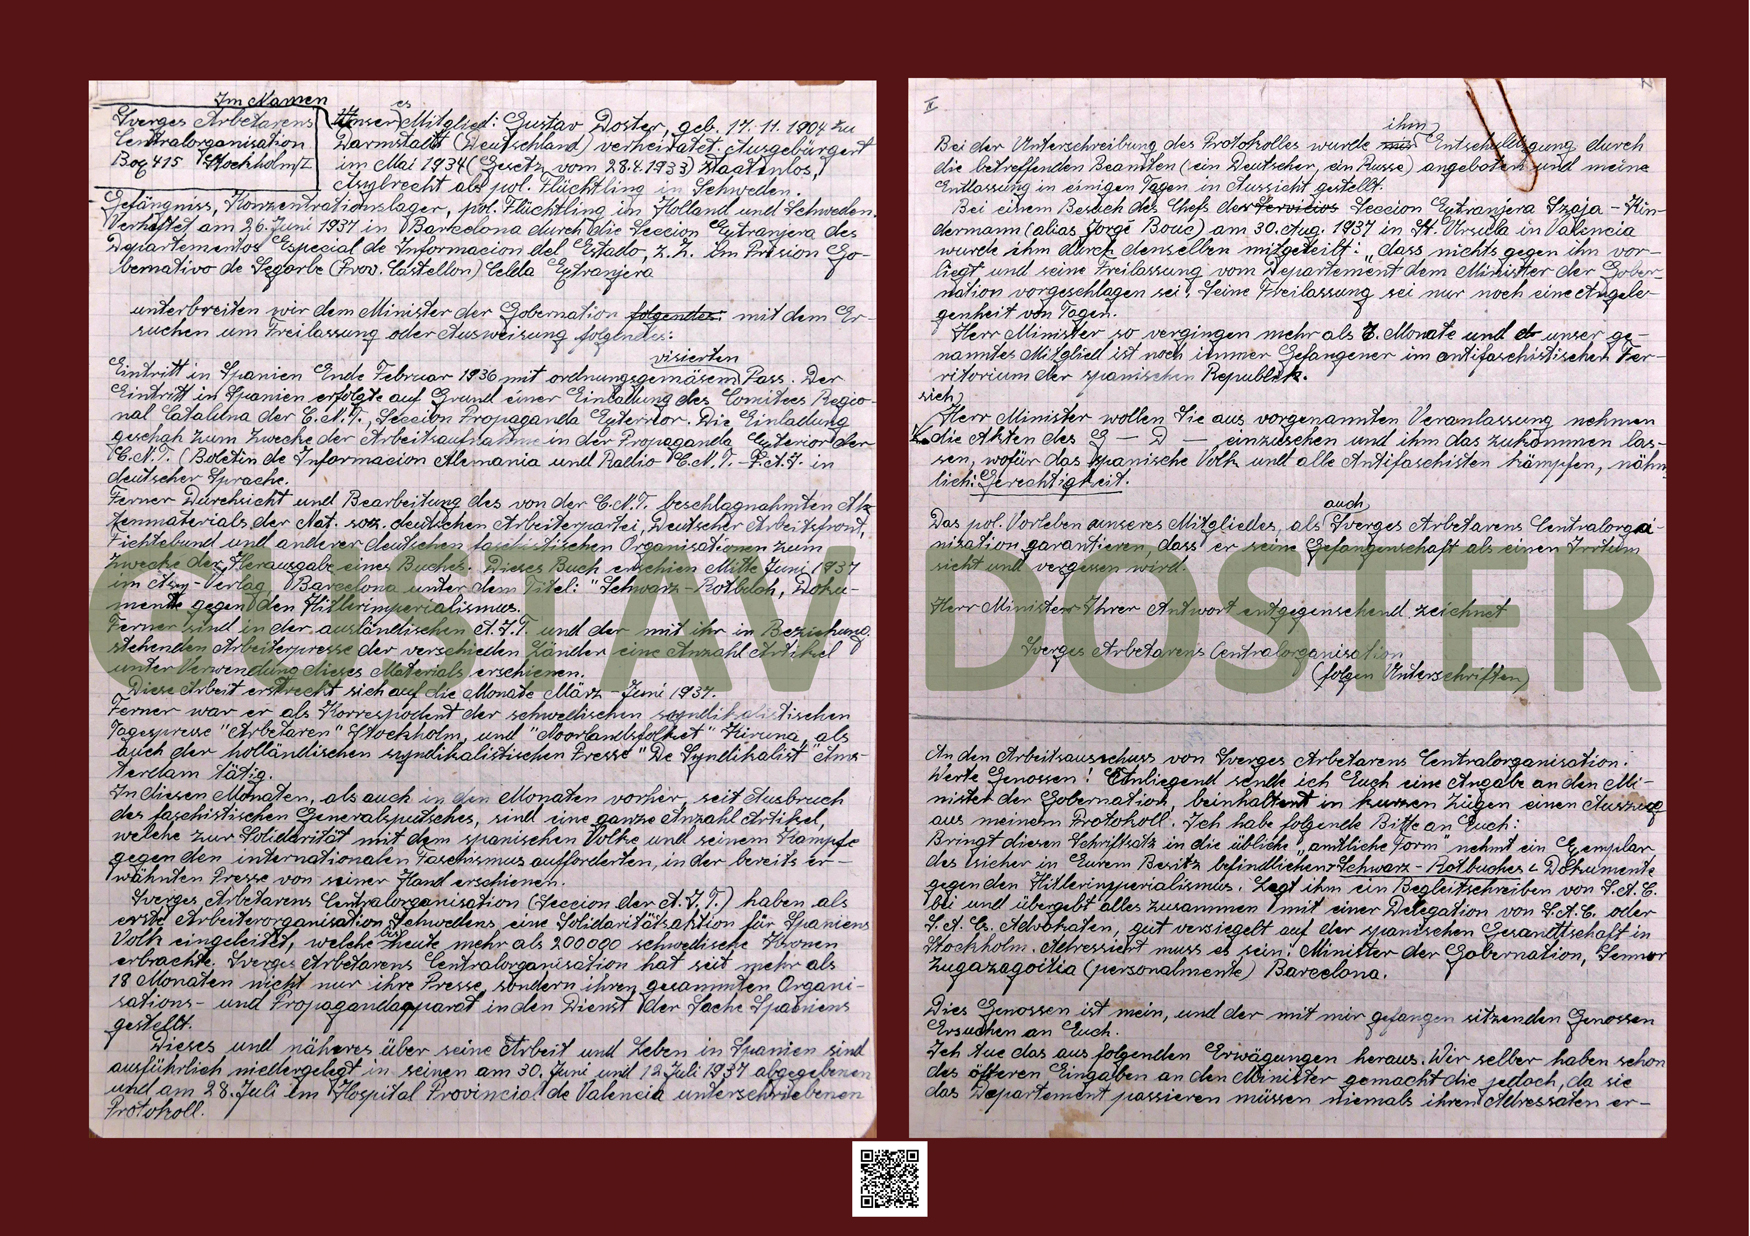 Im Namen
Sverges Arbetarens
Centralorganisation
Box 415 Stockholm 2
es
Unser Mitglied: Gustav Doster, geb. 17.11.1904 zu
Darmstadt (Deutschland) verheiratet. Ausgebürgert
im Mai 1934 (Gesetz vom 28.4.1933) Staatenlos,
Asylrecht als pol. Flüchtling in Schweden.
Gefängniss, Konzentrationslager, pol. Flüchtling in Holland und Schweden.
Verhaftet am 26. Juni 1937 in Barcelona durch die Seccion Extranjera des
Departementos Especial de Informacion del Estado, z.Z. im Prision Go-
bernativo de Segorbe (Prov. Castellon) Celda Extranjera
unterbreiten wir dem Minister der Gobernation folgendes: mit dem Er-
suchen um Freilassung oder Ausweisung folgendes:
visierten
Eintritt in Spanien Ende Februar 1936 mit ordnungsgemäsem Pass. Der
Eintritt in Spanien erfolgte auf Grund einer Einladung des Comitees Regio-
nal Cataluna der C.N.T., Seccion Propaganda Exterior. Die Einladung
geschah zum Zwecke der Arbeitsaufnahme in der Propaganda Exterior der
C.N.T. (Boletin de Informacion Alemania und Radio C.N.T. - F.A.I. in
deutscher Sprache.
Ferner Durchsicht und Bearbeitung des von der C.N.T. beschlagnahmten Ak-
tenmaterials der Nat. soz. deutschen Arbeiterpartei, Deutscher Arbeitsfront,
Fichtebund und anderer deutschen faschistischen Organisationen zum
Zwecke der Herausgabe eines Buches. Dieses Buch erschien Mitte Juni 1937
im Asy-Verlag Barcelona unter dem Titel: "Schwarz-Rotbuch, Doku-
mente gegen den Hitlerimperialismus.
Ferner sind in der ausländischen A.I.T. und der mit ihr in Beziehung
stehenden Arbeiterpresse der verschieden Länder eine Anzahl Artikel
unter Verwendung dieses Materials erschienen.
Diese Arbeit erstreckt sich auf die Monate März - Juni 1937.
Ferner war er als Korrespodent der schwedischen syndikalistischen
Tagespresse "Arbetaren" Stockholm, und "Noorlandsfolket" Kiruna, als
auch der holländischen syndikalistischen Presse "De Syndikalist" Ams-
terdam tätig.
In diesen Monaten, als auch in den Monaten vorher, seit Ausbruch
des faschistischen Generalsputsches, sind eine ganze Anzahl Artikel,
welche zur Solidarität mit dem spanischen Volke und seinem Kampfe
gegen den internationalen Faschismus aufforderten, in der bereits er-
wähnten Presse von seiner Hand erschienen.
Sverges Arbetarens Centralorganisation (Seccion der A.I.T.) haben als
erste Arbeiterorganisation Schwedens eine Solidaritätsaktion für Spaniens
Volk eingeleitet, welche bis heute mehr als 200000 schwedische Kronen
erbrachte. Sverges Arbetarens Centralorganisation hat seit mehr als
18 Monaten nicht nur ihre Presse, sondern ihren gesammten Organi-
sations- und Propagandaapparat in den Dienst der Sache Spaniens
gestellt.
Dieses und näheres über seine Arbeit und Leben in Spanien sind
ausführlich niedergelegt in seinen am 30. Juni und 12 Juli 1937 abgegebenen
und am 28. Juli im Hospital Provincial de Valencia unterschriebenen
Protokoll.
II
ihm
Bei der Unterschreibung des Protokolles wurde mir Entschuldigung durch
die betreffenden Beamten (ein Deutscher, ein Russe) angeboten und meine
Entlassung in einigen Tagen in Aussicht gestellt.
Bei einem Besuch des Chefs des Servicios Seccion Extranjera Szaja - Kin-
dermann (alias Jorge Bouc) am 30. Aug. 1937 in St. Ursula in Valencia
wurde ihm durch denselben mitgeteilt: "dass nichts gegen ihn vor-
liegt und seine Freilassung vom Departement dem Minister der Gober-
nation vorgeschlagen sei! Seine Freilassung sei nur noch eine Angele-
genheit von Tagen.
Herr Minister so vergingen mehr als 7. Monate und unser ge-
nanntes Mitglied ist noch immer Gefangener im antifaschistischen Ter-
ritorium der spanischen Republik.
sich
Herr Minister wollen Sie aus vorgenannten Veranlassung nehmen
die Akten des G — D — einzusehen und ihm das zukommen las-
sen, wofür das spanische Volk und alle Antifaschisten kämpfen, nähm-
lich: Gerechtigkeit.
auch
Das pol. Vorleben unseres Mitgliedes, als Sverges Arbetarens Centralorga-
nization garantieren, dass er seine Gefangenschaft als einen Irrtum
sieht und vergesen wird.
Herr Minister Ihrer Antwort entgegensehend zeichnet
Sverges Arbetarens Centralorganisation
(folgen Unterschriften)
An den Arbeitsausschuss von Sverges Arbetarens Centralorganisation.
Werte Genossen! Einliegend sende ich Euch eine Angabe an den Mi-
nister der Gobernation, beinhaltent in kurzen Zügen einen Auszug
aus meinem Protokoll. Ich habe folgende Bitte an Euch:
Bringt diesen Schriftsatz in die übliche "amtliche Form" nehmt ein Exemplar
des sicher in Eurem Besitz befindlichen Schwarz-Rotbuches "Dokumente
gegen den Hitlerimperialismus. Legt ihm ein Begleitschreiben von S.A.C.
bei und übergebt alles zusammen mit einer Delegation von S.A.C. oder
S.A.C. Advokaten, gut versiegelt auf der spanischen Gesandtschaft in
Stockholm. Adressiert muss es sein: Minister der Gobernation, Sennor
Zugazagoitia (personalmente) Barcelona.
Dies Genossen ist mein, und der mit mir gefangen sitzenden Genossen
Ersuchen an Euch.
Ich tue das aus folgenden Erwägungen heraus. Wir selber haben schon
des öfteren Eingaben an den Minister gemacht die jedoch, da sie
das Departement passieren müssen niemals ihren Adressaten er-
GUSTAV DOSTER